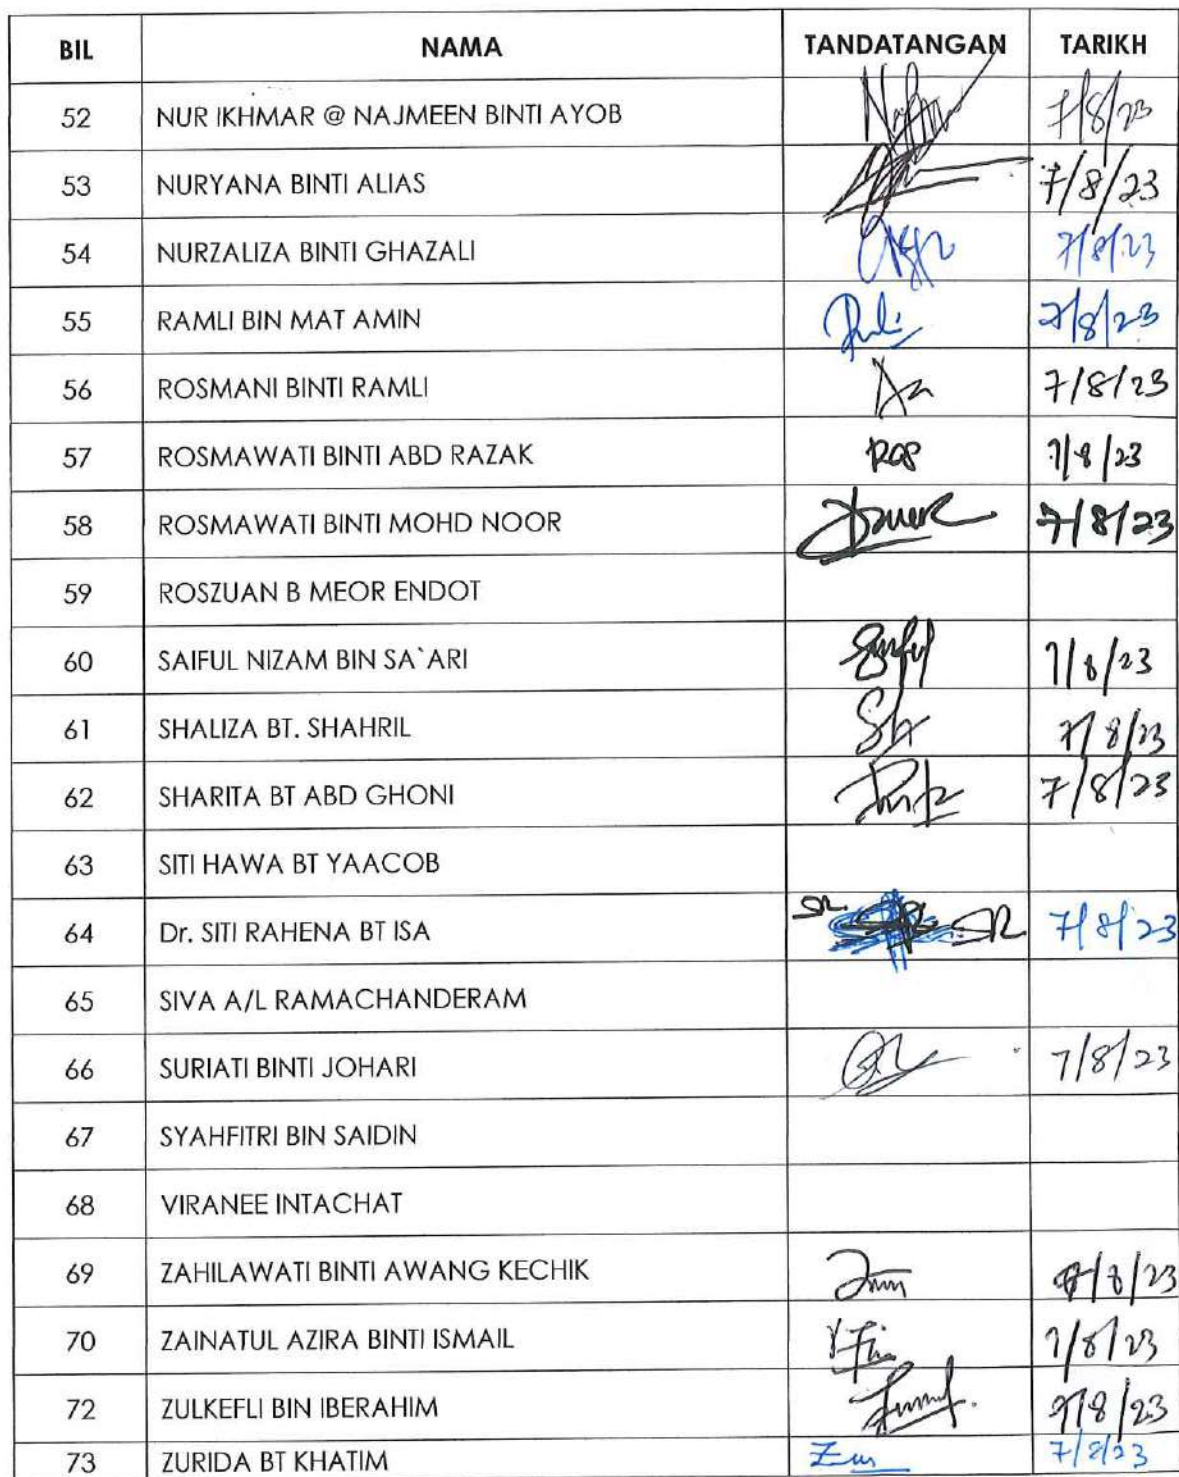 BIL NAMA TANDATANGAN TARIKH
52 NUR IKHMAR @ NAJMEEN BINTI AYOB 7/8/23
53 NURYANA BINTI ALIAS 7/8/23
54 NURZALIZA BINTI GHAZALI 7/8/23
55 RAMLI BIN MAT AMIN 7/8/23
56 ROSMANI BINTI RAMLI 7/8/23
57 ROSMAWATI BINTI ABD RAZAK ROS 7/8/23
58 ROSMAWATI BINTI MOHD NOOR 7/8/23
59 ROSZUAN B MEOR ENDOT
60 SAIFUL NIZAM BIN SA`ARI 7/8/23
61 SHALIZA BT. SHAHRIL 7/8/23
62 SHARITA BT ABD GHONI 7/8/23
63 SITI HAWA BT YAACOB
64 Dr. SITI RAHENA BT ISA 7/8/23
65 SIVA A/L RAMACHANDERAM
66 SURIATI BINTI JOHARI 7/8/23
67 SYAHFITRI BIN SAIDIN
68 VIRANEE INTACHAT
69 ZAHILAWATI BINTI AWANG KECHIK 7/8/23
70 ZAINATUL AZIRA BINTI ISMAIL 7/8/23
72 ZULKEFLI BIN IBERAHIM 7/8/23
73 ZURIDA BT KHATIM 7/8/23